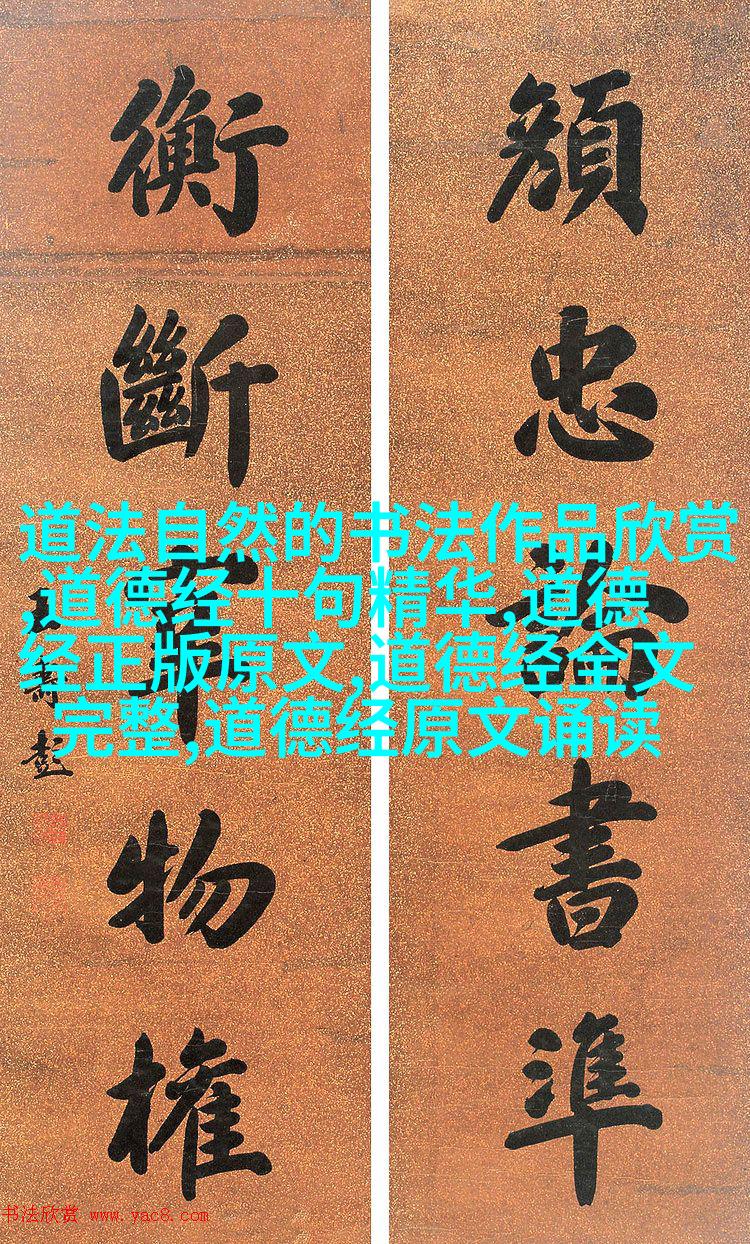 顏
忠
書
準
衡
斷
物
權
壽彭
道法自然的书法作品欣赏
,道德经十句精华,道德
经正版原文,道德经全文
完整,道德经原文诵读
书法欣赏 www.yac8.com